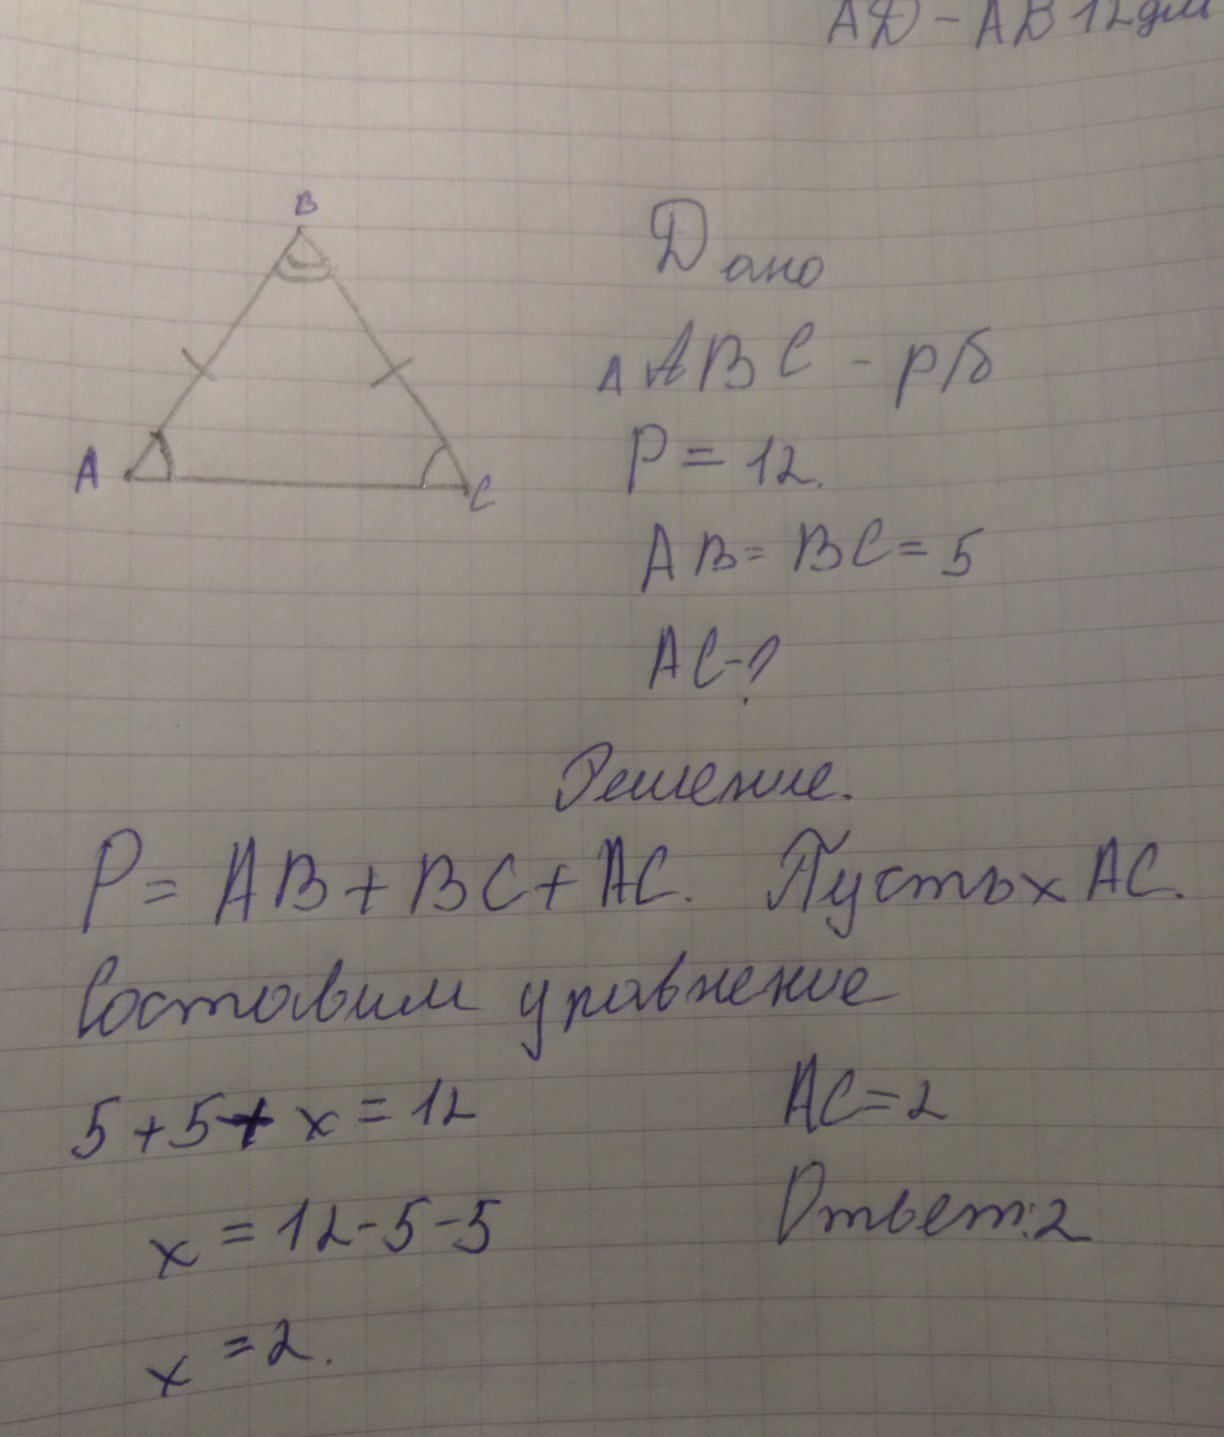 AD - AB 12дм
B
A
C
Дано
△ ABC - р/б
P = 12.
AB = BC = 5
AC - ?
Решение.
P = AB + BC + AC. Пусть x AC.
Составим уравнение
5 + 5 + x = 12
x = 12 - 5 - 5
x = 2.
AC = 2
Ответ: 2